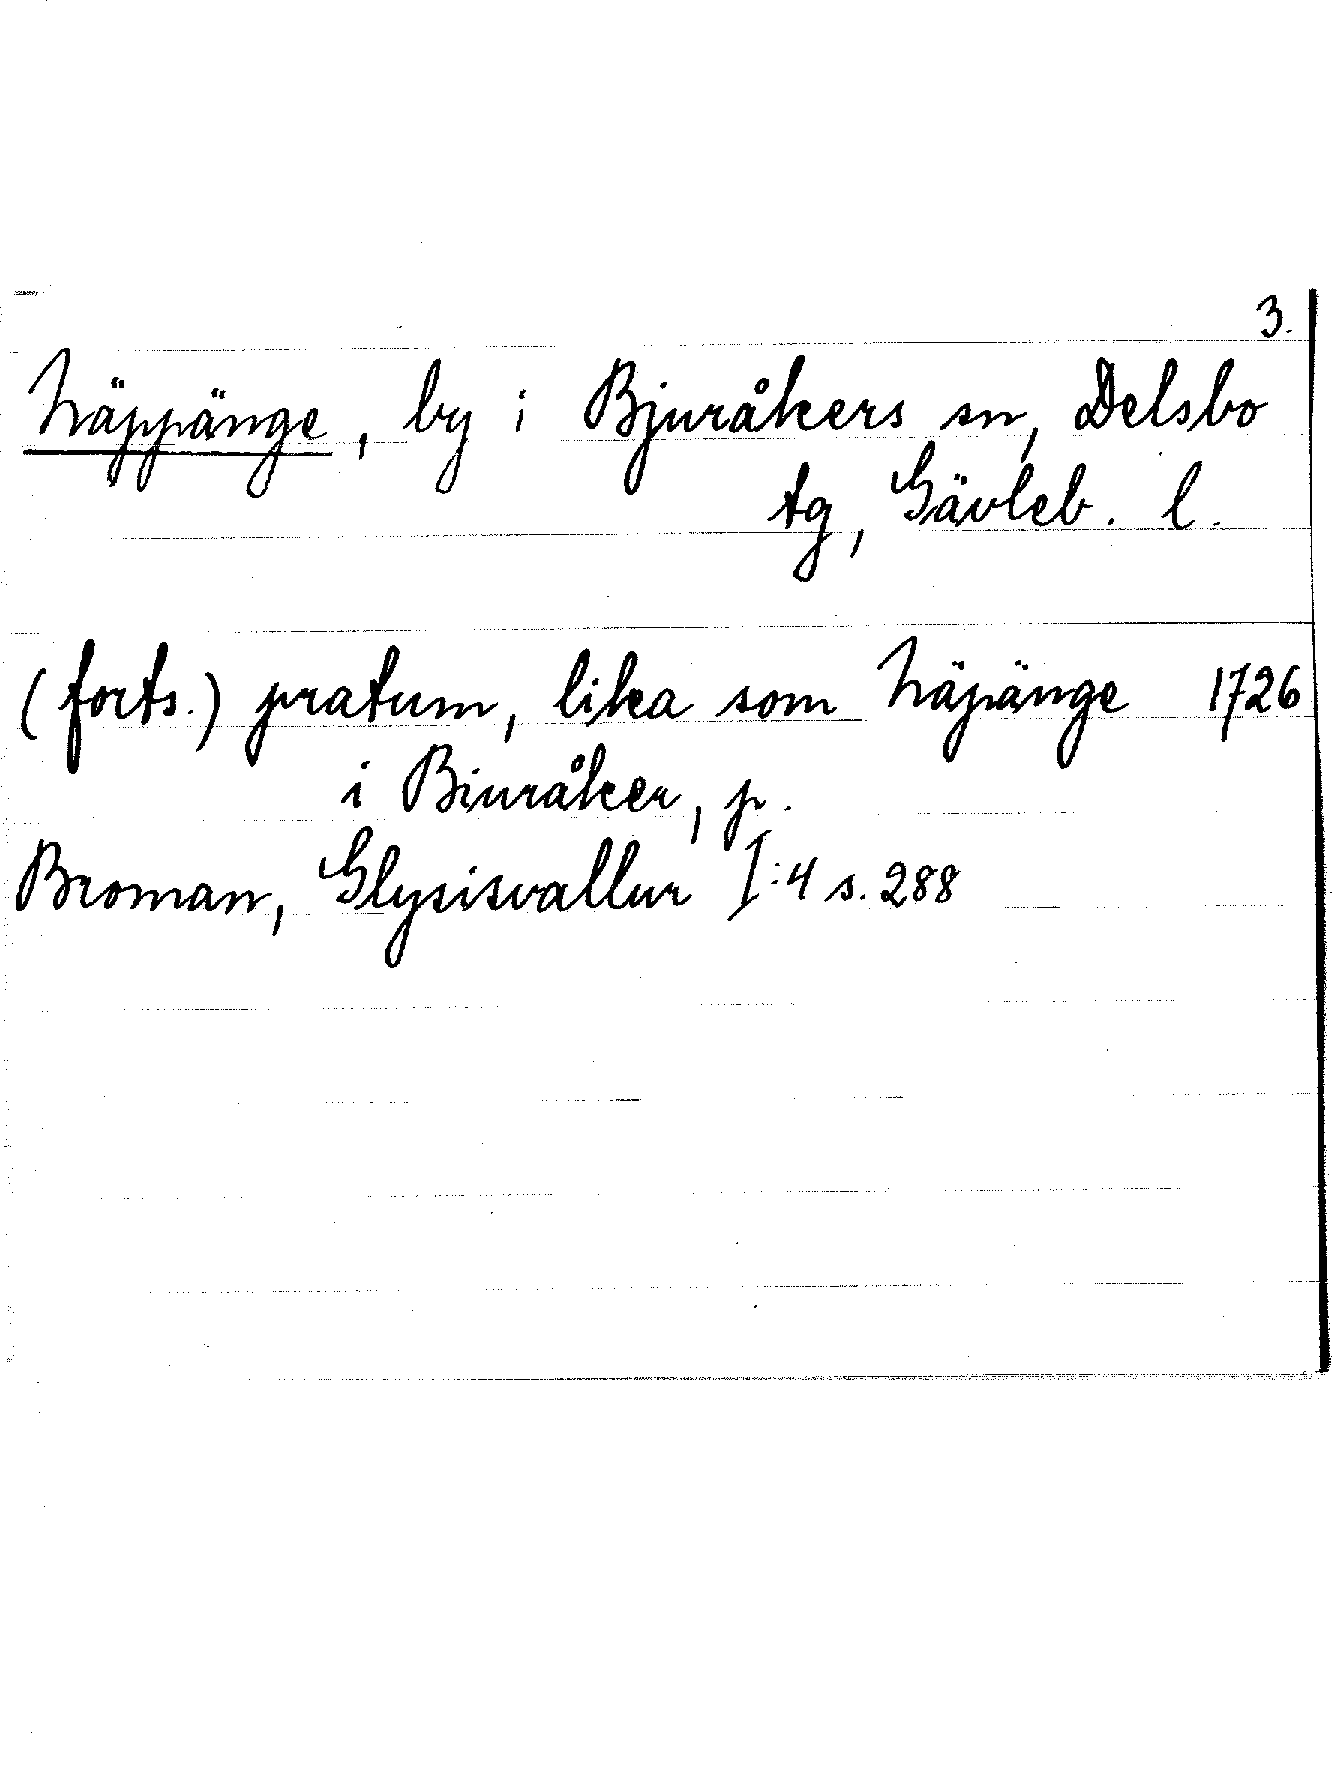 3.
Näppänge, by i Bjuråkers sn, Delsbo
tg, Gävleb. l.
(forts.) pratum, lika som Näpänge 1726
i Biuråker, p.
Broman, Glysisvallur I:4 s. 288